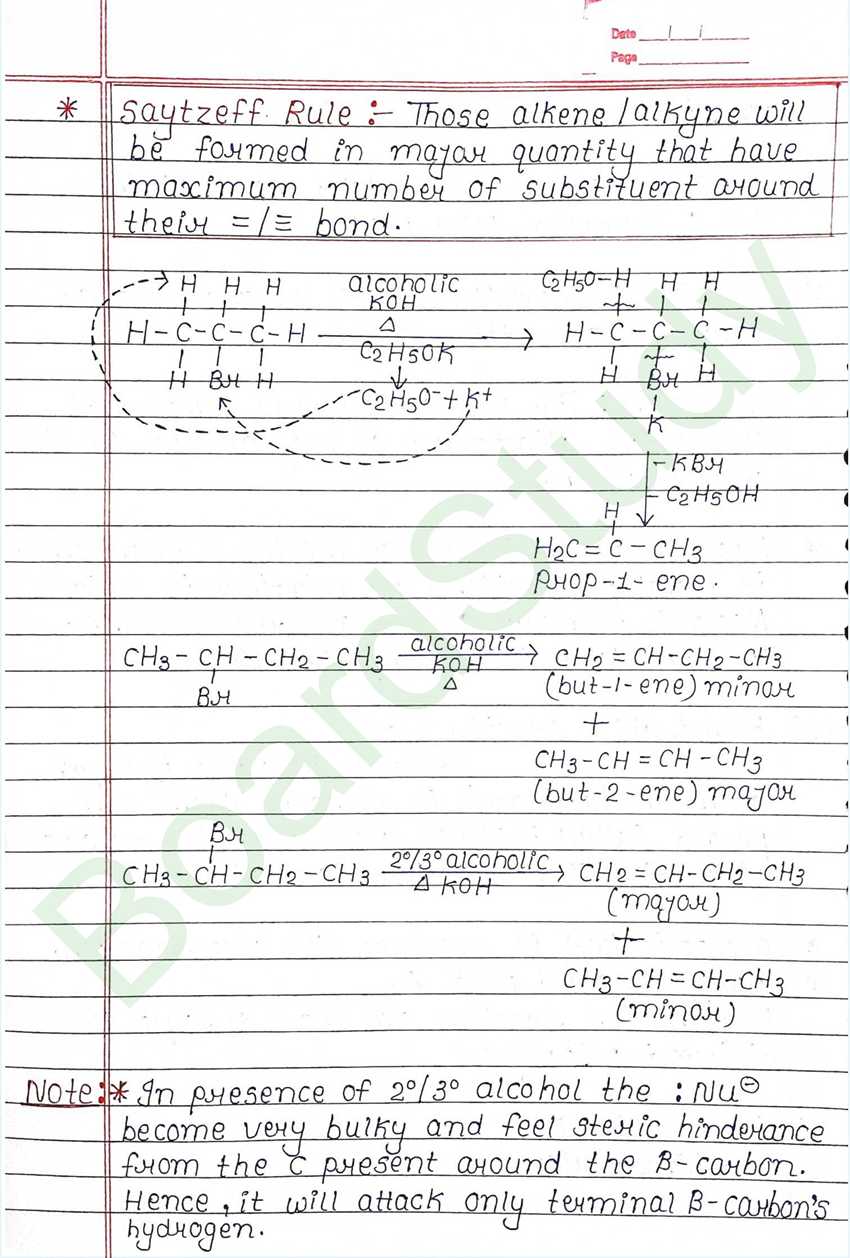 Date __/__/__
Page ______
* Saytzeff Rule :- Those alkene/alkyne will
be formed in major quantity that have
maximum number of substituent around
their =/≡ bond.
H H H alcoholic C2H5O-H H H
KOH
H-C-C-C-H Δ → H-C-C-C-H
C2H5OK
H Br H ↓ H Br H
C2H5O⁻ + K⁺
K
- KBr
- C2H5OH
H
H2C = C - CH3
Prop-1-ene.
CH3 - CH - CH2 - CH3 alcoholic KOH Δ → CH2 = CH-CH2-CH3
Br (but-1-ene) minor
+
CH3-CH = CH-CH3
(but-2-ene) major
Br
CH3-CH-CH2-CH3 2°/3° alcoholic Δ KOH → CH2 = CH-CH2-CH3
(major)
+
CH3-CH = CH-CH3
(minor)
Note:* In presence of 2°/3° alcohol the :Nu⊖
become very bulky and feel steric hinderance
from the C present around the B-carbon.
Hence, it will attack only terminal B-carbon's
hydrogen.
BoardStudy